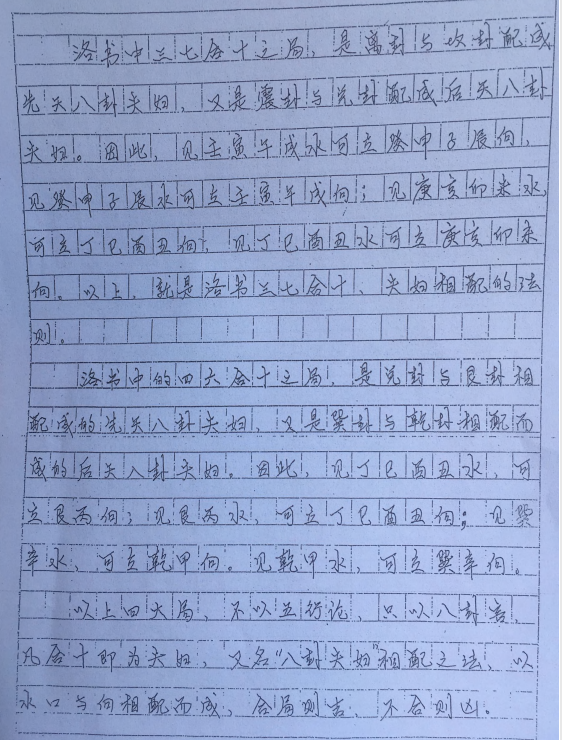 洛书中三七合十之局，是离卦与坎卦配成
先天八卦夫妇，又是震卦与兑卦配成后天八卦
夫妇。因此，见壬寅午戌水可立癸申子辰向，
见癸申子辰水可立壬寅午戌向；见庚亥卯未水，
可立丁巳酉丑向，见丁巳酉丑水可立庚亥卯未
向。以上，就是洛书三七合十、夫妇相配的法
则。
洛书中的四六合十之局，是兑卦与艮卦相
配成的先天八卦夫妇，又是巽卦与乾卦相配而
成的后天八卦夫妇。因此，见丁巳酉丑水，可
立艮丙向；见艮丙水，可立丁巳酉丑向；见巽
辛水，可立乾甲向。见乾甲水，可立巽辛向。
以上四大局，不以五行论，只以八卦言，
凡合十即为夫妇，又名“八卦夫妇”相配之法，以
水口与向相配而成，合局则吉，不合则凶。